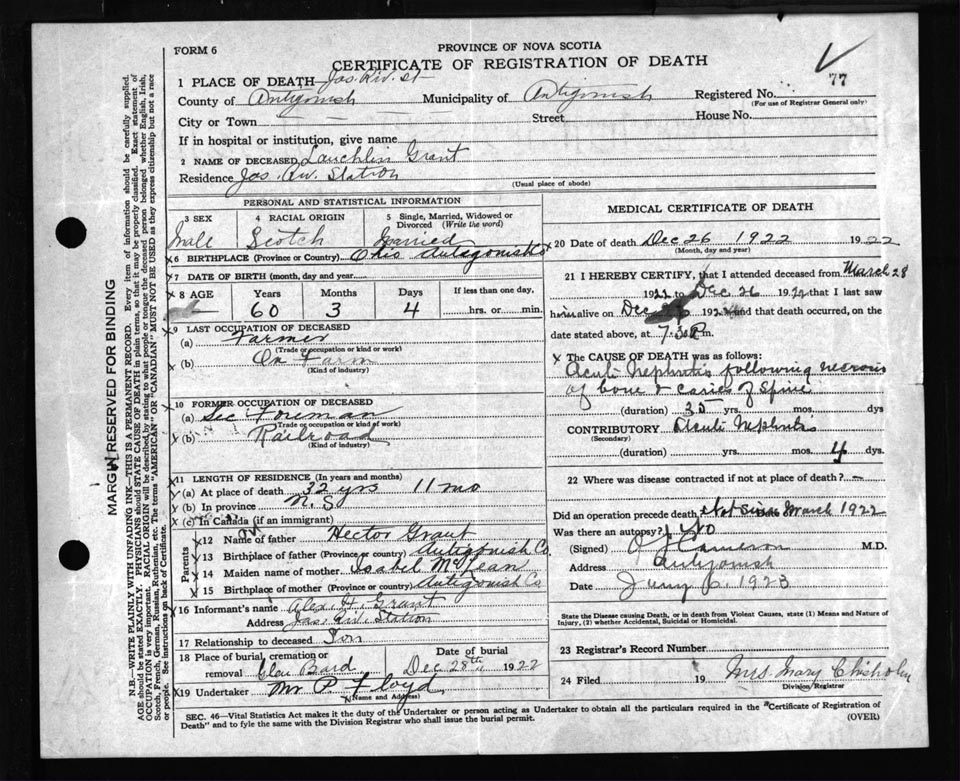 FORM 6
PROVINCE OF NOVA SCOTIA
CERTIFICATE OF REGISTRATION OF DEATH
77
1 PLACE OF DEATH—Jas. Riv. St
County of Antigonish Municipality of Antigonish Registered No.
(For use of Registrar General only)
City or Town Street House No.
If in hospital or institution, give name
2 NAME OF DECEASED Lauchlin Grant
Residence Jas. Riv. Station
(Usual place of abode)
PERSONAL AND STATISTICAL INFORMATION
3 SEX 4 RACIAL ORIGIN 5 Single, Married, Widowed or Divorced (Write the word)
Male Scotch Married
6 BIRTHPLACE (Province or Country) Ohio Antigonish Co
7 DATE OF BIRTH (month, day and year)
8 AGE Years Months Days If less than one day,
60 3 4 hrs. or min.
9 LAST OCCUPATION OF DECEASED
(a) Farmer
(Trade or occupation or kind or work)
(b) On Farm
(Kind of industry)
10 FORMER OCCUPATION OF DECEASED
(a) Sec Foreman
(Trade or occupation or kind of work)
(b) Railroad
(Kind of industry)
11 LENGTH OF RESIDENCE (In years and months)
(a) At place of death 32 yrs 11 mo
(b) In province N. S.
(c) In Canada (if an immigrant)
Parents
12 Name of father Hector Grant
13 Birthplace of father (Province or country) Antigonish Co
14 Maiden name of mother Isabel McLean
15 Birthplace of mother (Province or country) Antigonish Co
16 Informant's name Alex H. Grant
Address Jas. Riv. Station
17 Relationship to deceased Son
18 Place of burial, cremation or removal Glen Bard Date of burial Dec 28th, 1922
19 Undertaker Mr P. Floyd
(Name and Address)
MEDICAL CERTIFICATE OF DEATH
20 Date of death Dec 26 1922 1922
(Month, day and year)
21 I HEREBY CERTIFY, that I attended deceased from March 28
1922 to Dec 26 1922 that I last saw
him alive on Dec 26 1922 and that death occurred, on
date stated above, at 7.30 P.m.
The CAUSE OF DEATH was as follows:
Acute Nephritis following necrosis
of bone & caries of Spine
(duration) 35 yrs. mos. dys
CONTRIBUTORY Acute Nephritis
(Secondary)
(duration) yrs. mos. 4 dys.
22 Where was disease contracted if not at place of death? —
Did an operation precede death Not since March 1922
Was there an autopsy? No
(Signed) Cameron M.D.
Address Antigonish
Date 1923
State the Disease causing Death, or in death from Violent Causes, state (1) Means and Nature of
Injury, (2) whether Accidental, Suicidal or Homicidal.
23 Registrar's Record Number
24 Filed 19 Mrs Mary Chisholm
Division Registrar
SEC. 46—Vital Statistics Act makes it the duty of the Undertaker or person acting as Undertaker to obtain all the particulars required in the "Certificate of Registration of
Death" and to fyle the same with the Division Registrar who shall issue the burial permit.
(OVER)
MARGIN RESERVED FOR BINDING
N.B.—WRITE PLAINLY WITH UNFADING INK—THIS IS A PERMANENT RECORD. Every item of information should be carefully supplied.
AGE should be stated EXACTLY. PHYSICIANS should STATE CAUSE OF DEATH in plain terms, so that it may be properly classified. Exact statement of
OCCUPATION is very important. RACIAL ORIGIN will be described by stating to what people or tongue the deceased person belonged whether English, Irish,
Scotch, French, German, Russian, Ruthenian, etc. The terms "AMERICAN" or "CANADIAN" MUST NOT BE USED as they express citizenship but not a race
or people. See instructions on back of Certificate.